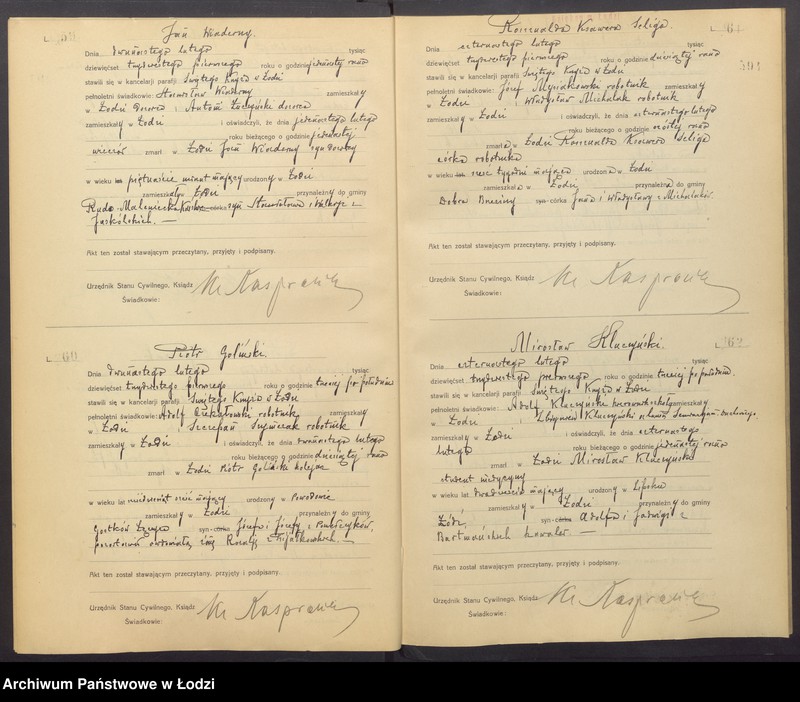 59
Jan Winderny.
Dnia dwunastego lutego tysiąc
dziewięćset trzydziestego pierwszego roku o godzinie jedenastej rano
stawili się w kancelarji parafji Świętego Krzyża w Łodzi
pełnoletni świadkowie: Stanisław Winderny zamieszkały
w Łodzi dozorca i Antoni dozorca
zamieszkały w Łodzi i oświadczyli, że dnia jedenastego lutego
roku bieżącego o godzinie jedenastej
wieczór zmarł w Łodzi Jan Winderny syn dozorcy
w wieku lat piętnaście minut mający urodzony w Łodzi
zamieszkały Łódź przynależny do gminy
Ruda Maleniecka syn córka Stanisława i Walerji z
Jaskólskich. —
Akt ten został stawającym przeczytany, przyjęty i podpisany.
Urzędnik Stanu Cywilnego, Ksiądz
Świadkowie:
60
Piotr Goliński.
Dnia dwunastego lutego tysiąc
dziewięćset trzydziestego pierwszego roku o godzinie trzeciej po południu
stawili się w kancelarji parafji Świętego Krzyża w Łodzi
pełnoletni świadkowie: Adolf robotnik zamieszkały
w Łodzi i Szczepan Szymczak robotnik
zamieszkały w Łodzi i oświadczyli, że dnia dwunastego lutego
roku bieżącego o godzinie dziesiątej rano
zmarł w Łodzi Piotr Goliński
w wieku lat mający urodzony w Powodowie
zamieszkały w Łodzi przynależny do gminy
Gostków syn córka Józefa i Józefy z
pozostawił owdowiałą żonę Rozalję z
Akt ten został stawającym przeczytany, przyjęty i podpisany.
Urzędnik Stanu Cywilnego, Ksiądz
Świadkowie:
61
Romualda Ksawera Seliga.
Dnia czternastego lutego tysiąc
dziewięćset trzydziestego pierwszego roku o godzinie dziewiątej rano
stawili się w kancelarji parafji Świętego Krzyża w Łodzi
pełnoletni świadkowie: Józef Mysiakowski robotnik zamieszkały
w Łodzi i Władysław Michalak robotnik
zamieszkały w Łodzi i oświadczyli, że dnia czternastego lutego
roku bieżącego o godzinie szóstej rano
zmarła w Łodzi Romualda Ksawera Seliga
córka robotnika
w wieku lat sześć tygodni mająca urodzona w Łodzi
zamieszkała w Łodzi przynależna do gminy
Dobra Brzeziny syn córka Jana i Władysławy z Michalaków.
Akt ten został stawającym przeczytany, przyjęty i podpisany.
Urzędnik Stanu Cywilnego, Ksiądz
Świadkowie:
62
Mirosław Kluczyński.
Dnia czternastego lutego tysiąc
dziewięćset trzydziestego pierwszego roku o godzinie trzeciej po południu
stawili się w kancelarji parafji Świętego Krzyża w Łodzi
pełnoletni świadkowie: Adolf Kluczyński zamieszkały
w Łodzi i Zbigniew Kluczyński
zamieszkały w Łodzi i oświadczyli, że dnia czternastego
lutego roku bieżącego o godzinie jedenastej rano
zmarł w Łodzi Mirosław Kluczyński
student medycyny
w wieku lat dwadzieścia mający urodzony w Lipsku
zamieszkały w Łodzi przynależny do gminy
Łódź, syn córka Adolfa i Jadwigi z
Bartmańskich kawaler —
Akt ten został stawającym przeczytany, przyjęty i podpisany.
Urzędnik Stanu Cywilnego, Ksiądz
Świadkowie:
Archiwum Państwowe w Łodzi